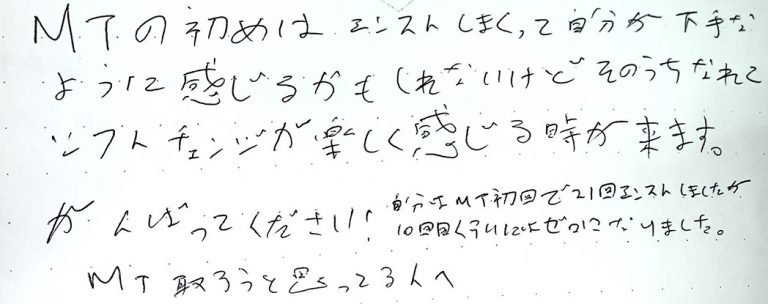 MTの初めは エンストしまくって自分が下手な
ように感じるかもしれないけど そのうちなれて
シフトチェンジが楽しく感じる時が来ます。
がんばってください!
自分はMT初回で21回エンストしましたが
10回目くらいにはゼロになりました。
MT取ろうと思ってる人へ